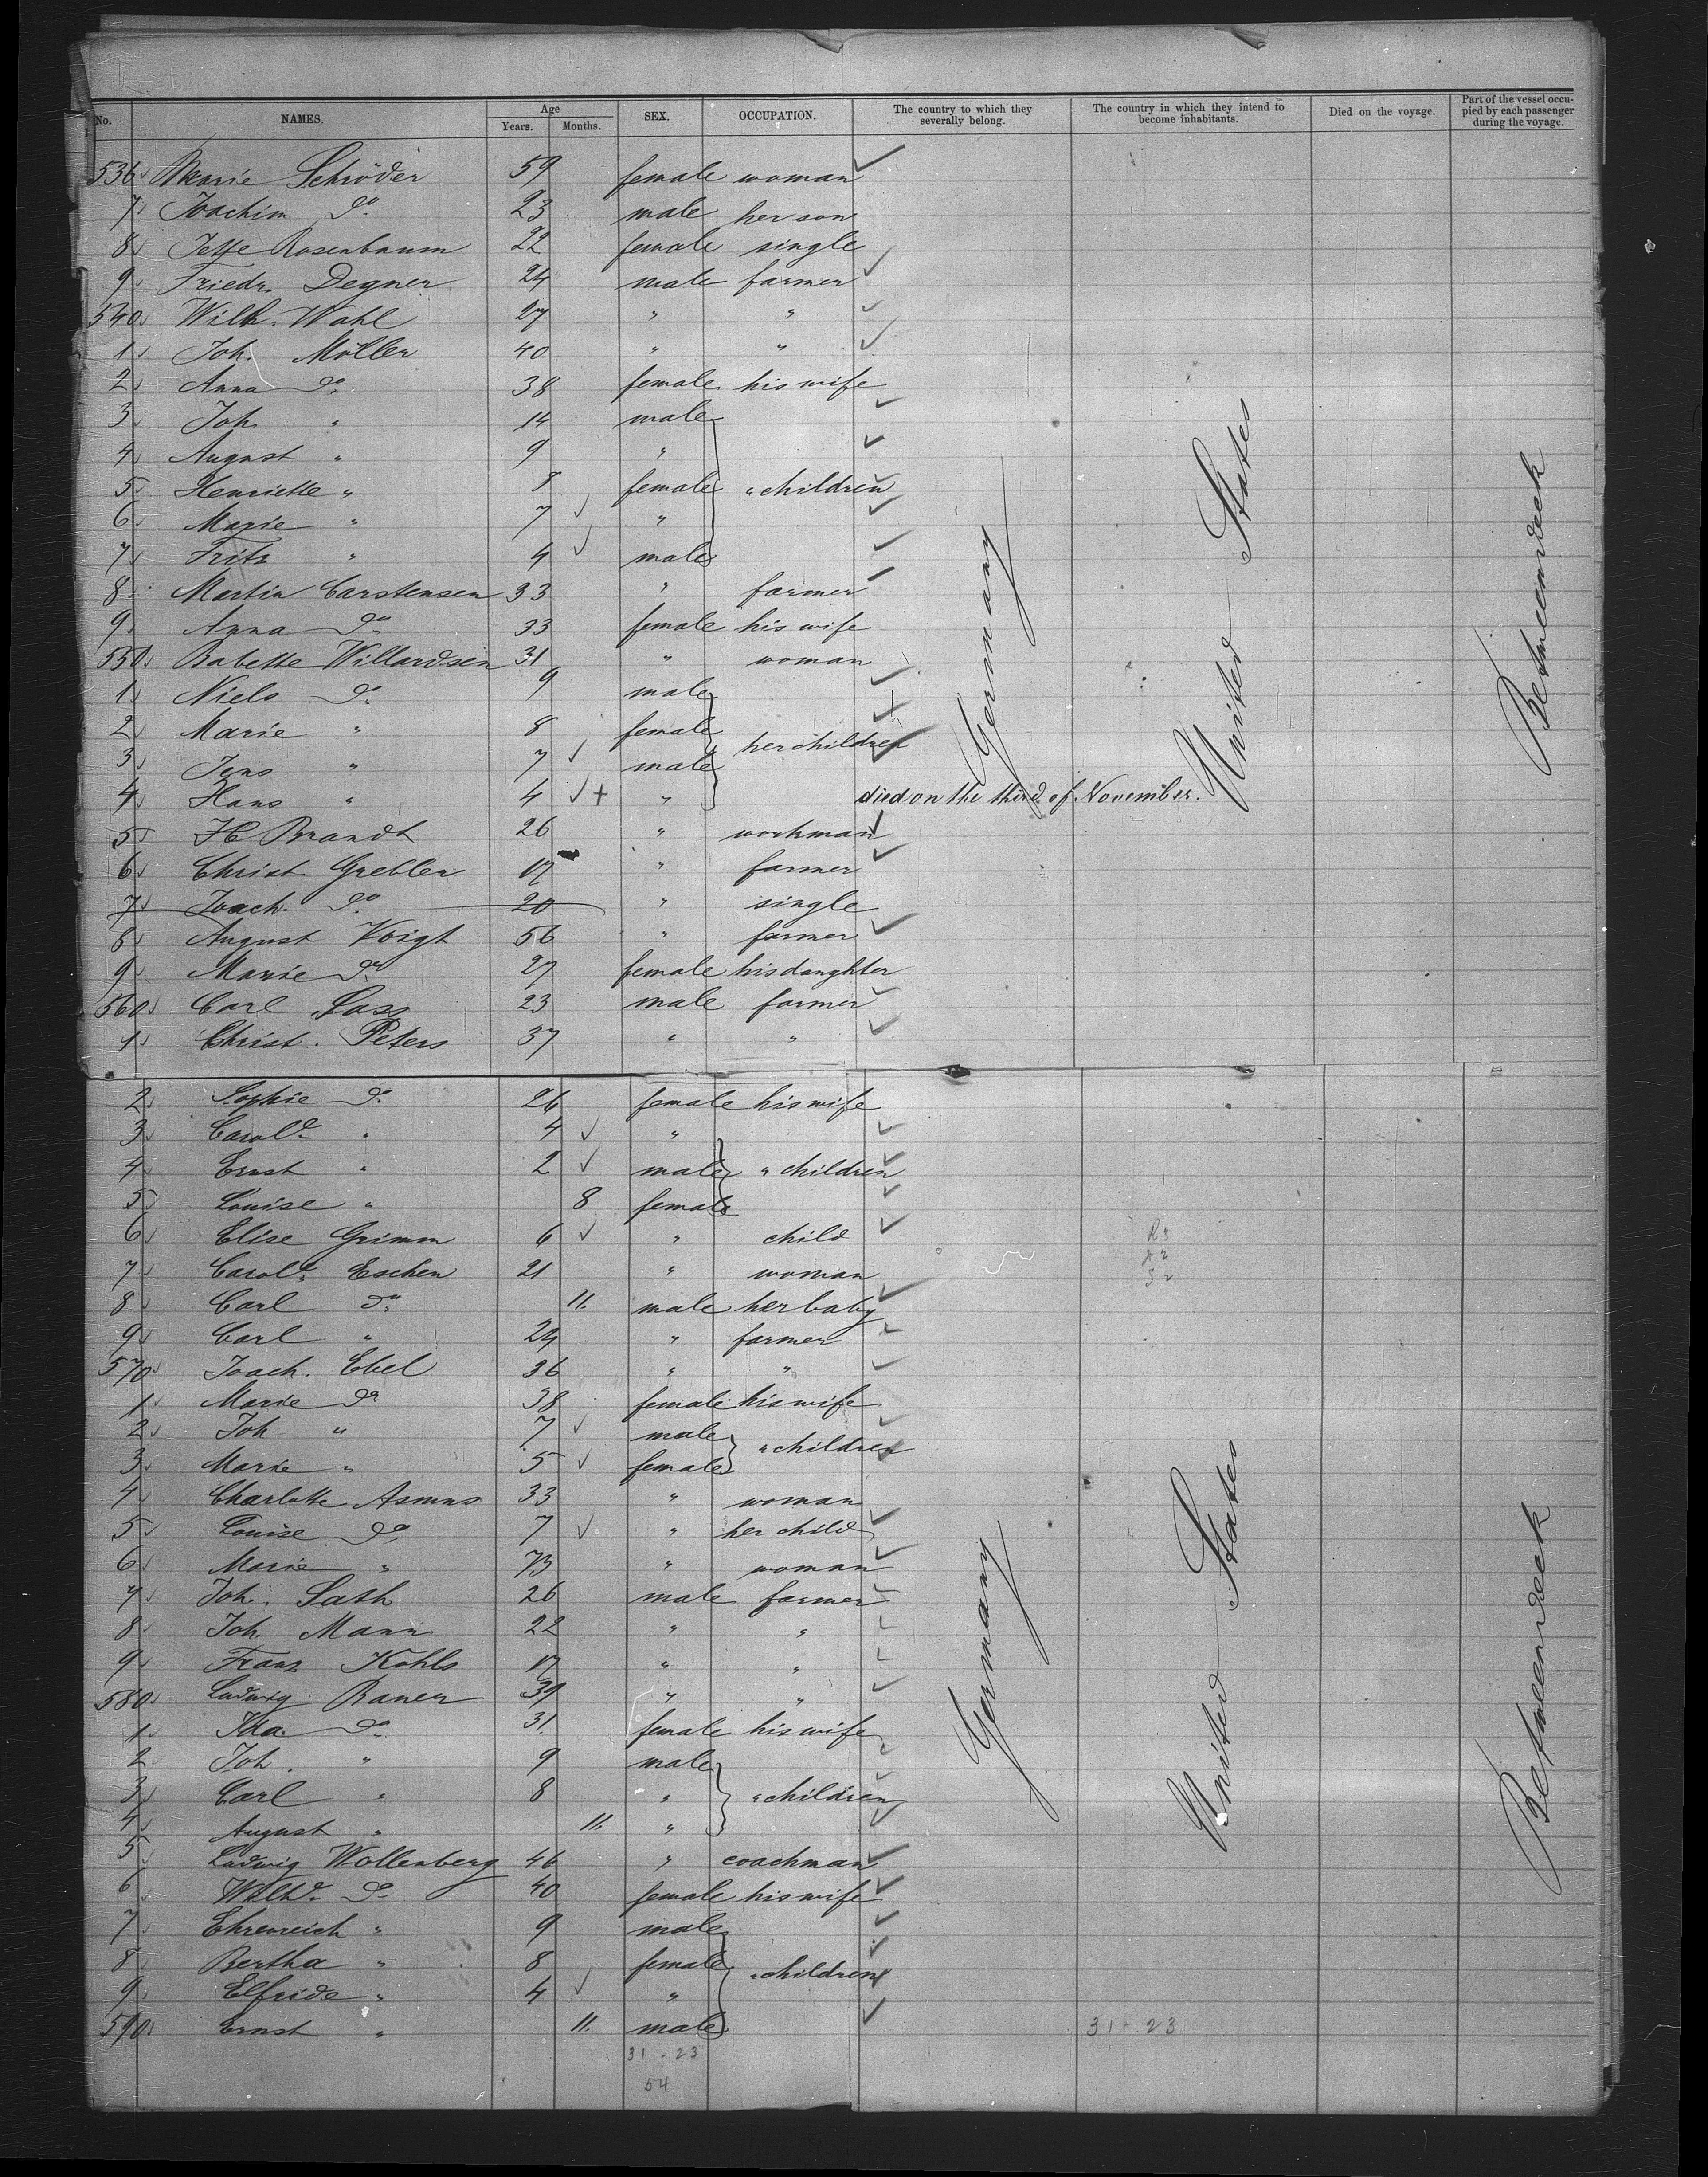 No. NAMES. Age Years. Months. SEX. OCCUPATION. The country to which they severally belong. The country in which they intend to become inhabitants. Died on the voyage. Part of the vessel occupied by each passenger during the voyage.
536 Marie Schröder 59 female woman
7 Joachim do 23 male her son
8 Jette Rosenbaum 22 female single
9 Friedr. Degner 24 male farmer
540 Wilh. Wahl 27 " "
1 Joh. Möller 40 " "
2 Anna do 38 female his wife
3 Joh. " 14 male
4 August " 9 "
5 Henriette " 8 female " children
6 Marie " 7 "
7 Fritz " 4 male
8 Martin Carstensen 33 " farmer
9 Anna do 33 female his wife
550 Babette Willardsen 31 " woman
1 Niels do 9 male
2 Marie " 8 female
3 Jens " 7 male her children
4 Hans " 4 + " died on the third of November.
5 H Brandt 26 " workman
6 Christ Grebler 17 " farmer
7 Joach. do 20 " single
8 August Voigt 56 " farmer
9 Marie do 27 female his daughter
560 Carl Sass 23 male farmer
1 Christ. Peters 37 " "
Germany
United States
Betweendeck
2 Sophie do 26 female his wife
3 Carole " 4 "
4 Ernst " 2 male " children
5 Louise " 8 female
6 Elise Grimm 6 " child
7 Carole Eschen 21 " woman
8 Carl do 11. male her baby
9 Carl " 24 " farmer
570 Joach. Ebel 36 " "
1 Marie do 38 female his wife
2 Joh " 7 male
3 Marie " 5 female " children
4 Charlotte Asmus 33 " woman
5 Louise do 7 " her child
6 Marie " 73 " woman
7 Joh. Sath 26 male farmer
8 Joh. Mann 22 " "
9 Franz Kohls 17 " "
580 Ludwig Baner 39 " "
1 Ida do 31. female his wife
2 Joh. " 9 male
3 Carl " 8 " " children
4 August " 11. "
5 Ludwig Wollenberg 46 " coachman
6 Wilhe do 40 female his wife
7 Ehrenreich " 9 male
8 Bertha " 8 female " children
9 Elfride " 4 "
590 Ernst " 11. male
Germany
United States
Betweendeck
31 - 23
31 - 23
54